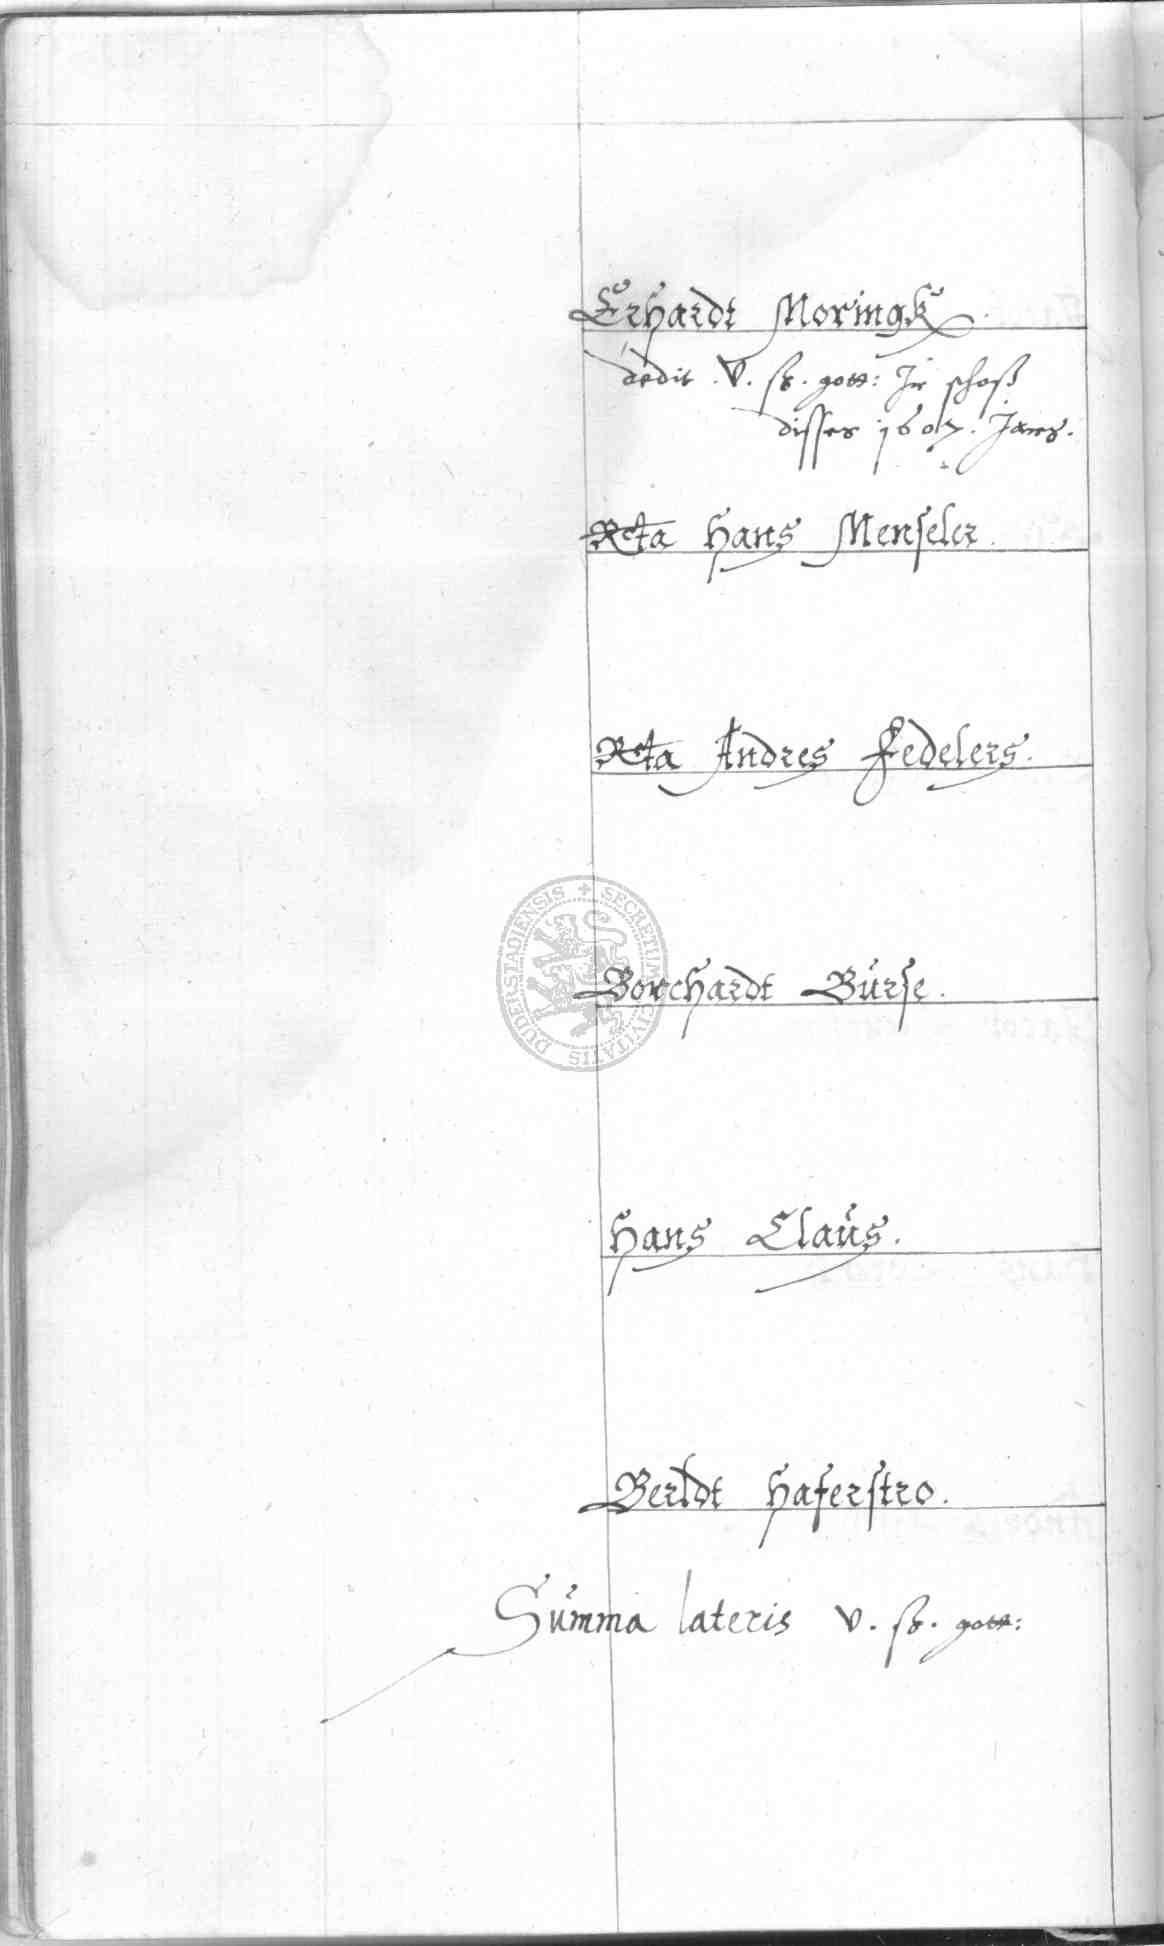 Erhardt Moringk.
dedit . V . ß . gott: In schoß
disses 1607. Jars.
Rcta Hans Menseler.
Rcta Andres Fedelers.
SECRETUM CIVITATIS DUDERSTADIENSIS
Borchardt Bürse.
Hans Claus.
Berldt Haferstro.
Summa lateris V . ß . gott: